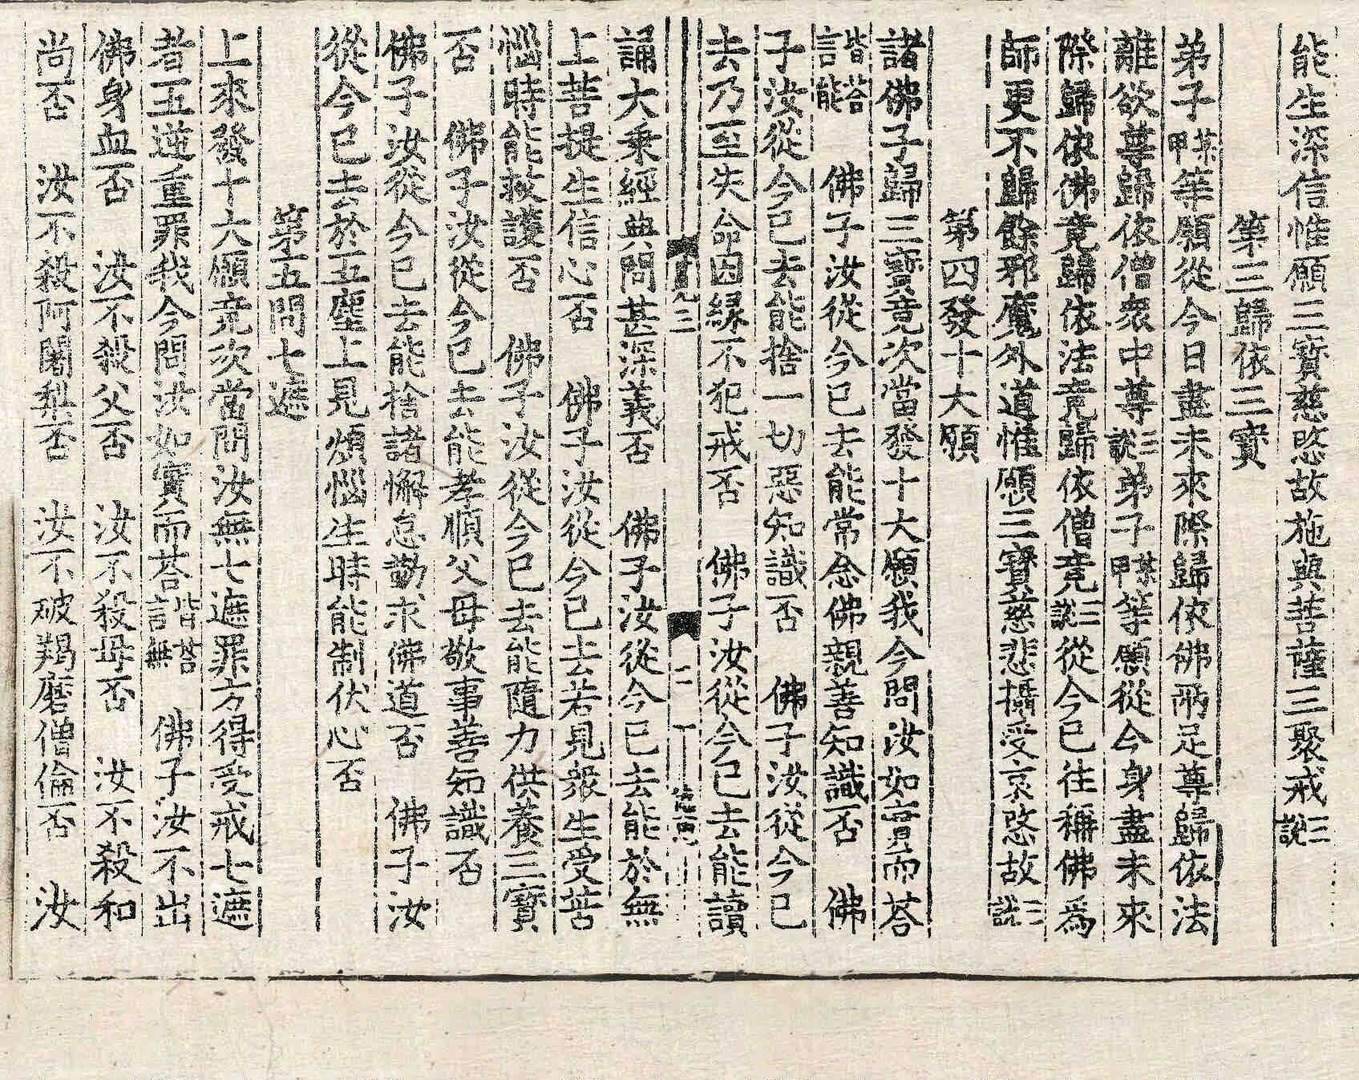 能生深信惟願三寶慈愍故施與菩薩三聚戒三說
第三歸依三寶
弟子某甲等願從今日盡未來際歸依佛兩足尊歸依法
離欲尊歸依僧衆中尊三說弟子某甲等願從今身盡未來
際歸依佛竟歸依法竟歸依僧竟三說從今已往稱佛爲
師更不歸餘邪魔外道惟願三寶慈悲攝受哀愍故三說
第四發十大願
諸佛子歸三寶竟次當發十大願我今問汝如實而荅
皆荅言能　佛子汝從今已去能常念佛親善知識否　佛
子汝從今已去能捨一切惡知識否　佛子汝從今已
去乃至失命因緣不犯戒否　佛子汝從今已去能讀
二
誦大乘經典問甚深義否　佛子汝從今已去能於無
上菩提生信心否　佛子汝從今已去若見衆生受苦
惱時能救護否　佛子汝從今已去能隨力供養三寶
否　佛子汝從今已去能孝順父母敬事善知識否
佛子汝從今已去能捨諸懈怠勤求佛道否　佛子汝
從今已去於五塵上見煩惱生時能制伏心否
第五問七遮
上來發十大願竟次當問汝無七遮罪方得受戒七遮
者五逆重罪我今問汝如實而荅皆荅言無　佛子汝不出
佛身血否　汝不殺父否　汝不殺母否　汝不殺和
尚否　汝不殺阿闍梨否　汝不破羯磨僧倫否　汝